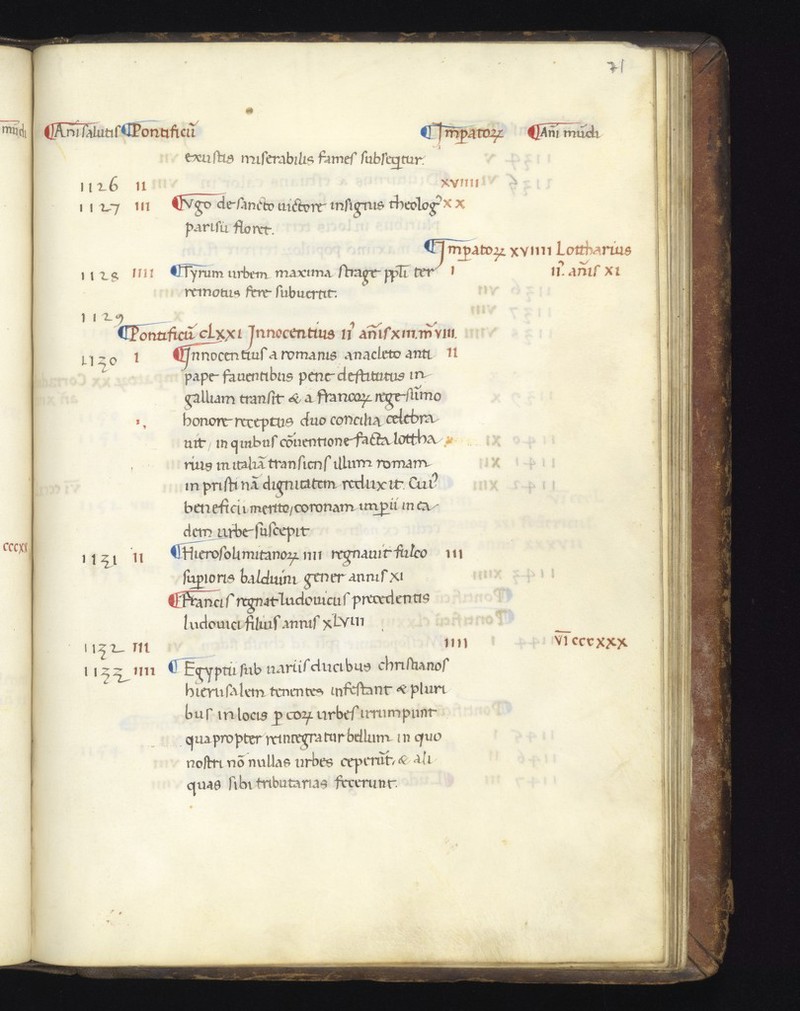 71
Añi salutis Pontificū Imp̱atoꝝ Añi mūdi
exustis miserabilis fames subseqͥtur.
1126 II XVIIII
1127 III Vgo de sancto uictore insignis theologꝰ XX
parisii floret.
Imp̱atoꝝ XVIIII Lottharius
IIꝰ. añis XI
1128 IIII Tyrum urbem maxima strage pp̄li ter I
remotus fere subuertit.
1129
Pontificū CLXXI Innocentius IIꝰ añis XIII. m̄ VIII.
1130 I Innocentius a romanis anacleto anti II
pape fauentibus pene destitutus in
galliam transit & a francoꝝ rege sūmo
honore receptus duo concilia celebra
uit, in quibus cōuentione facta lottha
rius in italiā transiens illum romam
in pristinā dignitatem reduxit. Cuiꝰ
beneficii merito, coronam imp̱ii in ea
dem urbe suscepit
1131 II Hierosolimitanoꝝ IIII regnauit fulco III
sup̱ioris balduini gener annis XI
Francis regnat ludouicus precedentis
ludouici filius annis XLVIII
1132 III IIII VI CCCXXX
1133 IIII Egyptii sub uariis ducibus christianos
hierusalem tenentes infestant & pluri
bus in locis p̱ eoꝝ urbes irrumpunt
quapropter reintegratur bellum in quo
nostri nō nullas urbes ceperūt, & ali
quas sibi tributarias fecerunt.